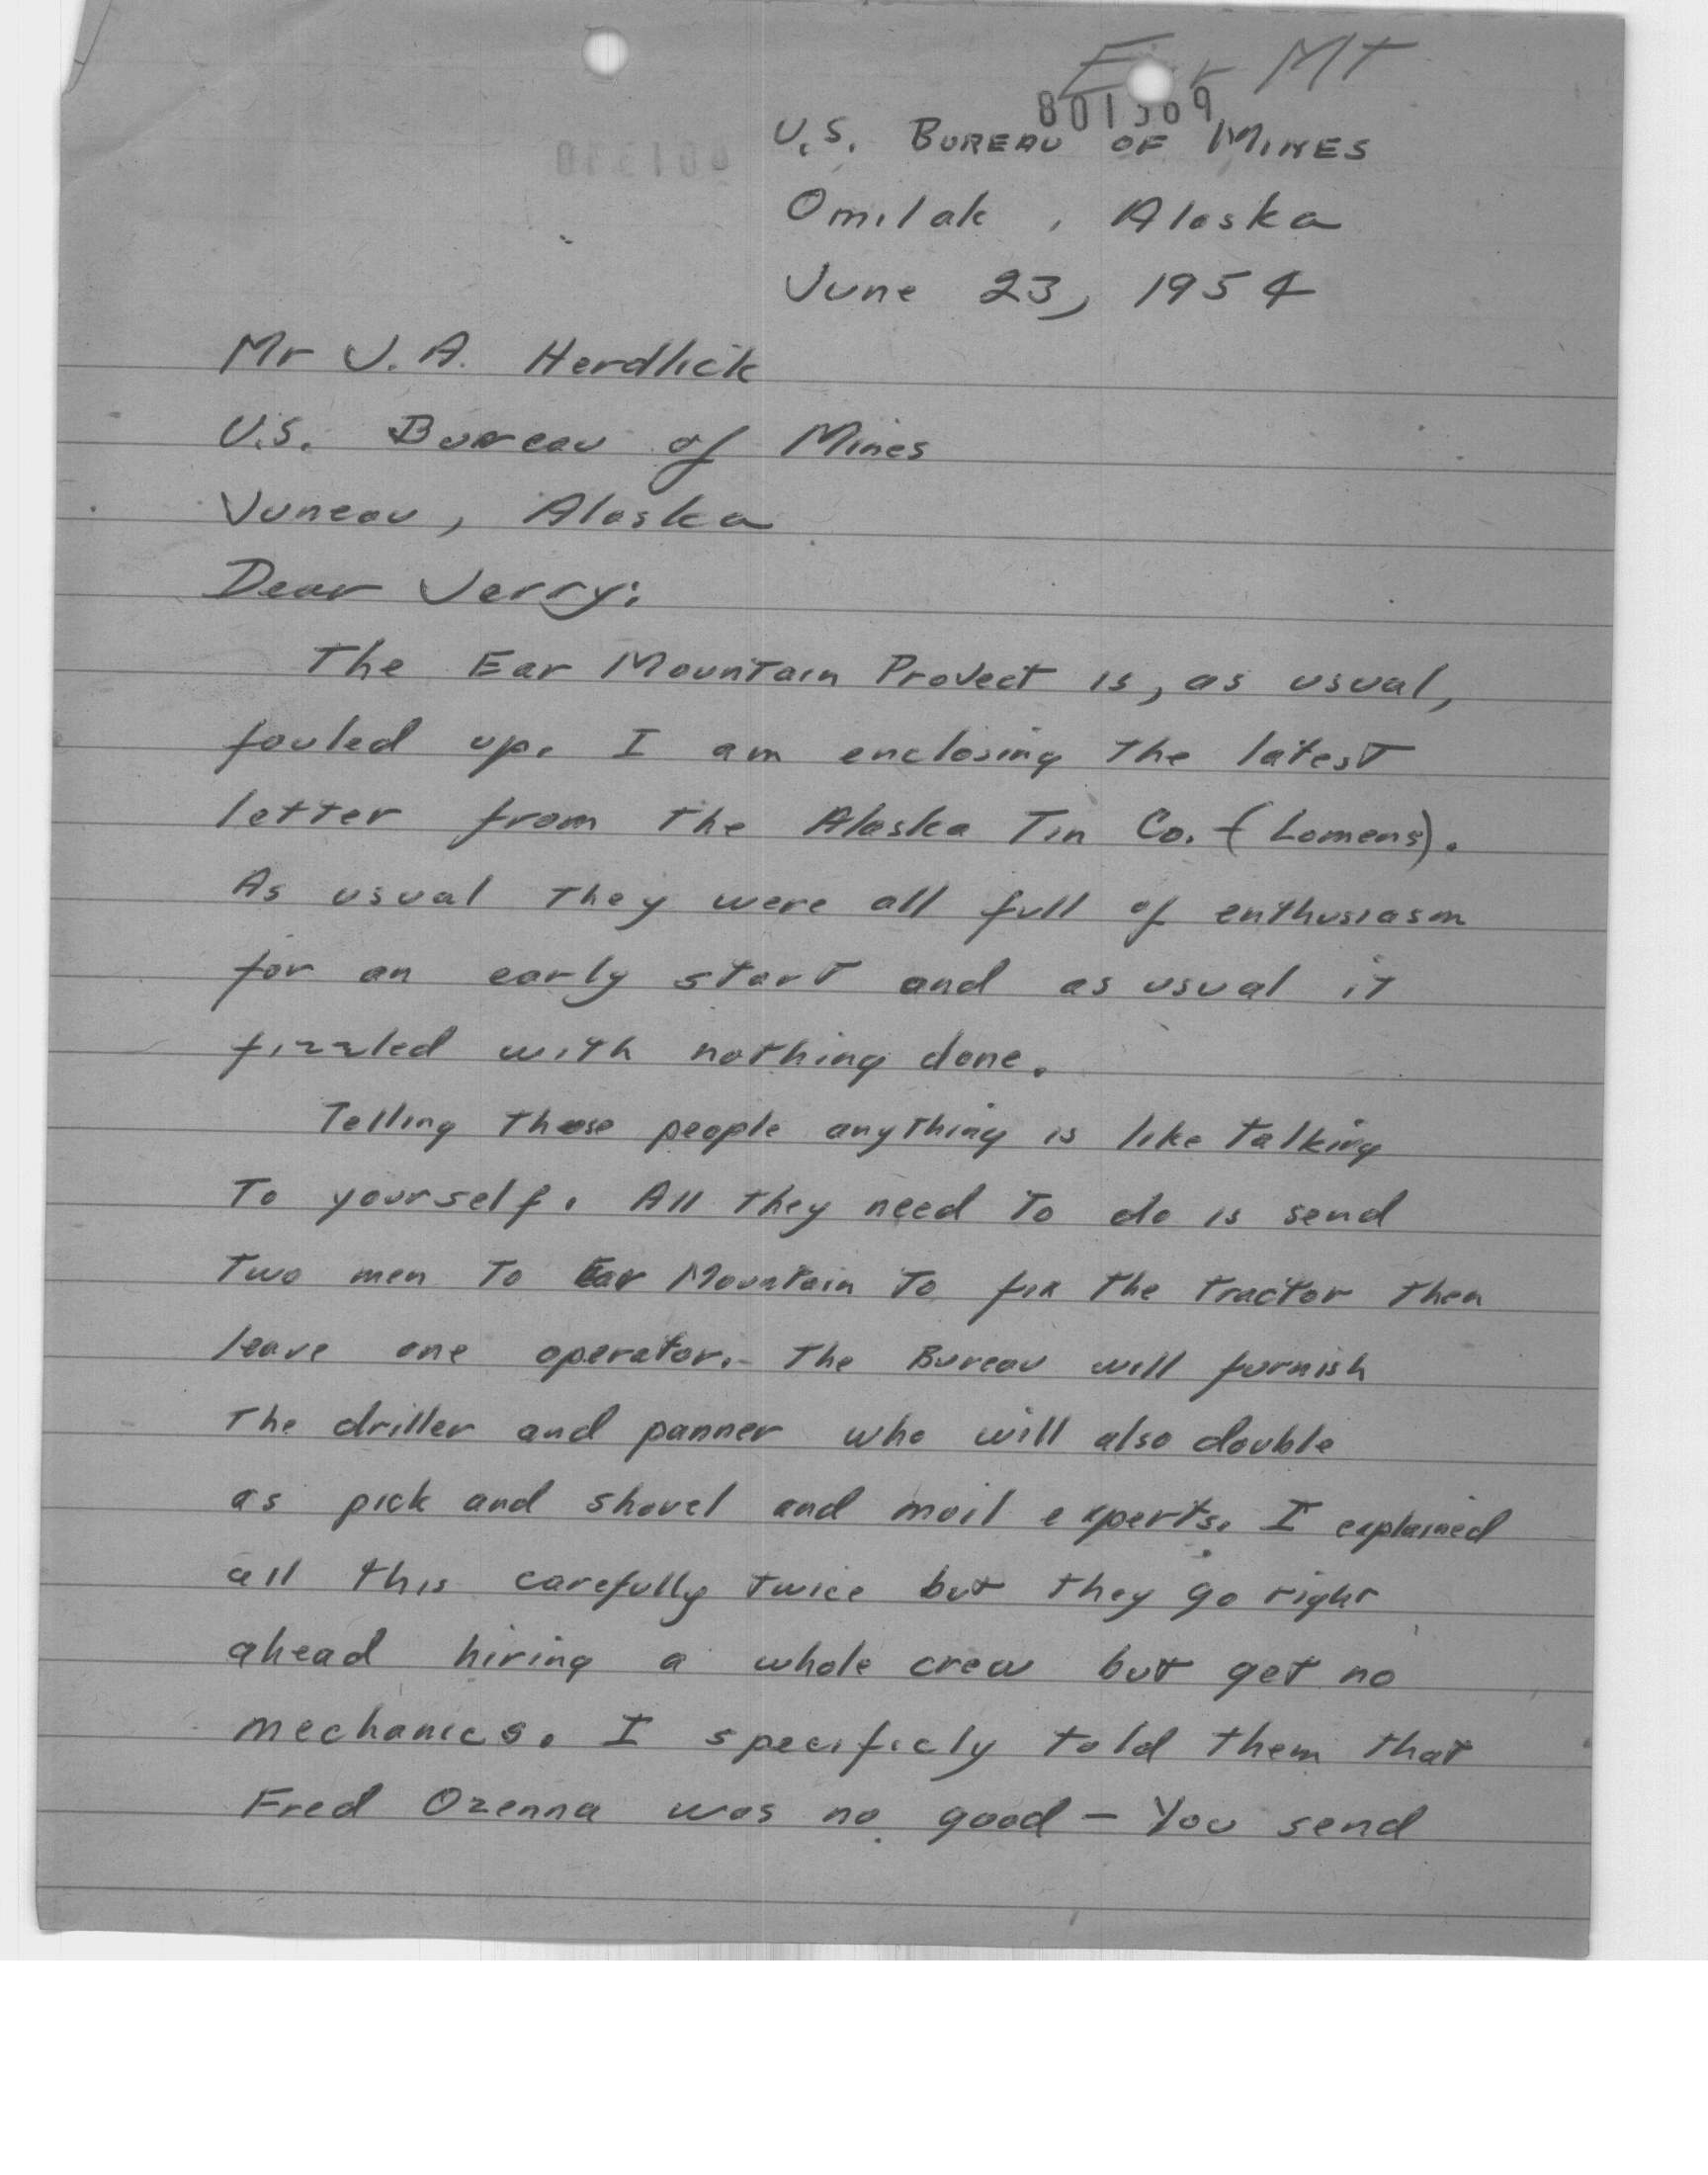 Ear MT
801369
U.S. BUREAU OF MINES
Omilak, Alaska
June 23, 1954
Mr J.A. Herdlick
U.S. Bureau of Mines
Juneau, Alaska
Dear Jerry:
The Ear Mountain Project is, as usual,
fouled up. I am enclosing the latest
letter from the Alaska Tin Co. (Lomens).
As usual they were all full of enthusiasm
for an early start and as usual it
fizzled with nothing done.
Telling those people anything is like talking
to yourself. All they need to do is send
two men to Ear Mountain to fix the tractor then
leave one operator. The Bureau will furnish
the driller and panner who will also double
as pick and shovel and moil experts. I explained
all this carefully twice but they go right
ahead hiring a whole crew but get no
mechanics. I specificly told them that
Fred Ozenna was no good — You send